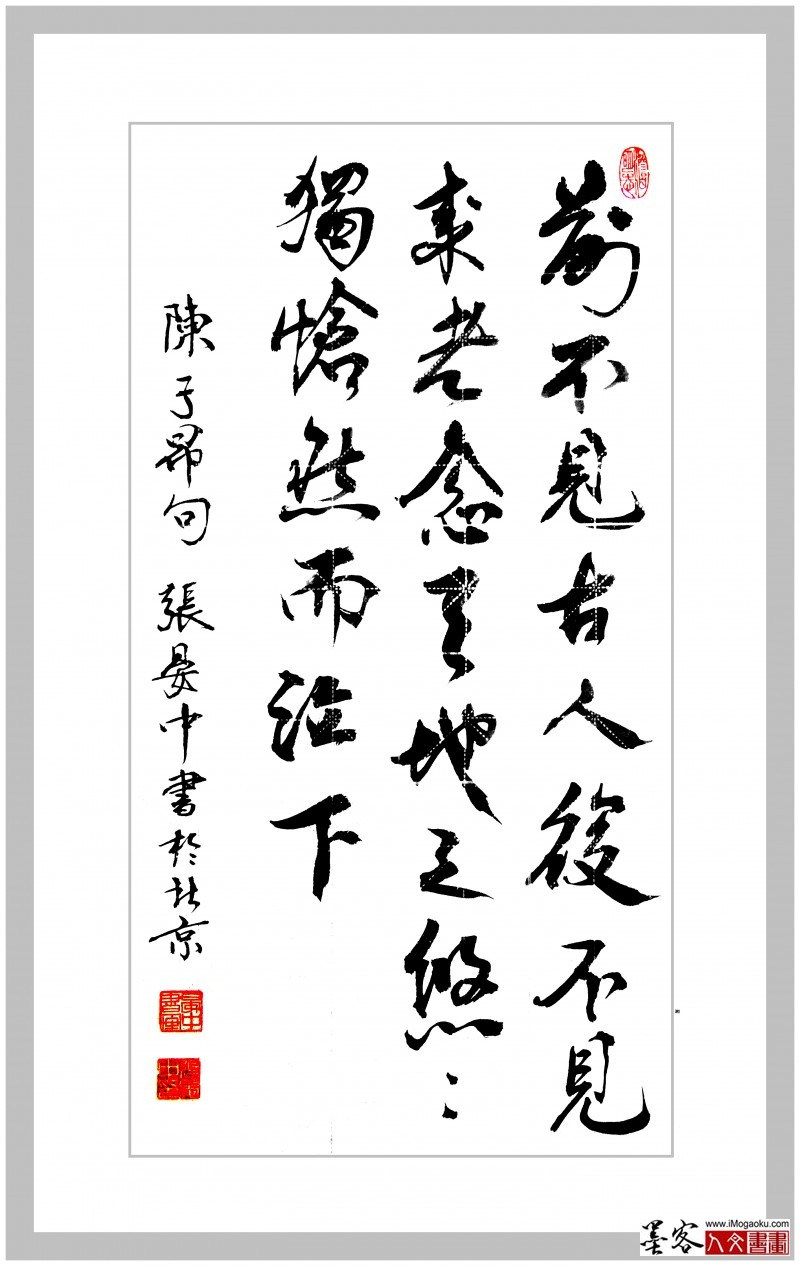 前不見古人後不見
來者念天地之悠〻
獨愴然而泣下
陳子昂句 張晏中書於北京
www.iMogaoku.com
墨客
人文書畫